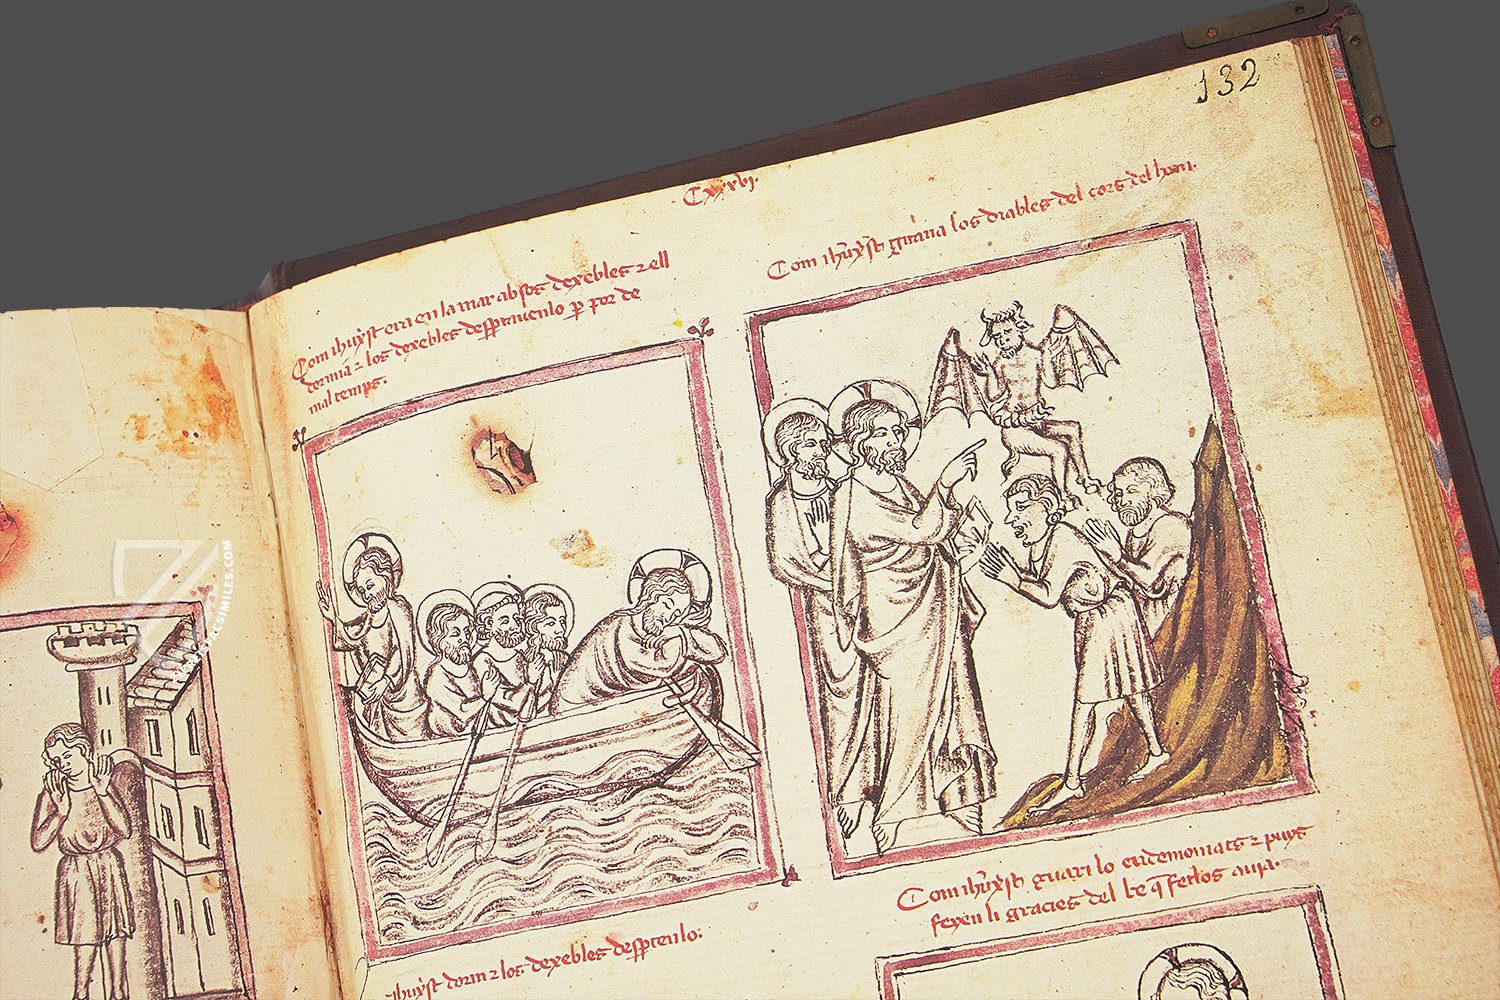 132
Cxxxvi.
Com ihuxst era en la mar ab sos dexebles z ell
dormia z los dexebles despertauenlo p por de
mal temps.
Com ihuxst gitaua los diables del cors del hom.
ihuxst dorm z los dexebles despertenlo:
Com ihuxst guari lo endemoniats z puys
feyen li gracies del be q ferlos auia.
FACSIMILES.COM